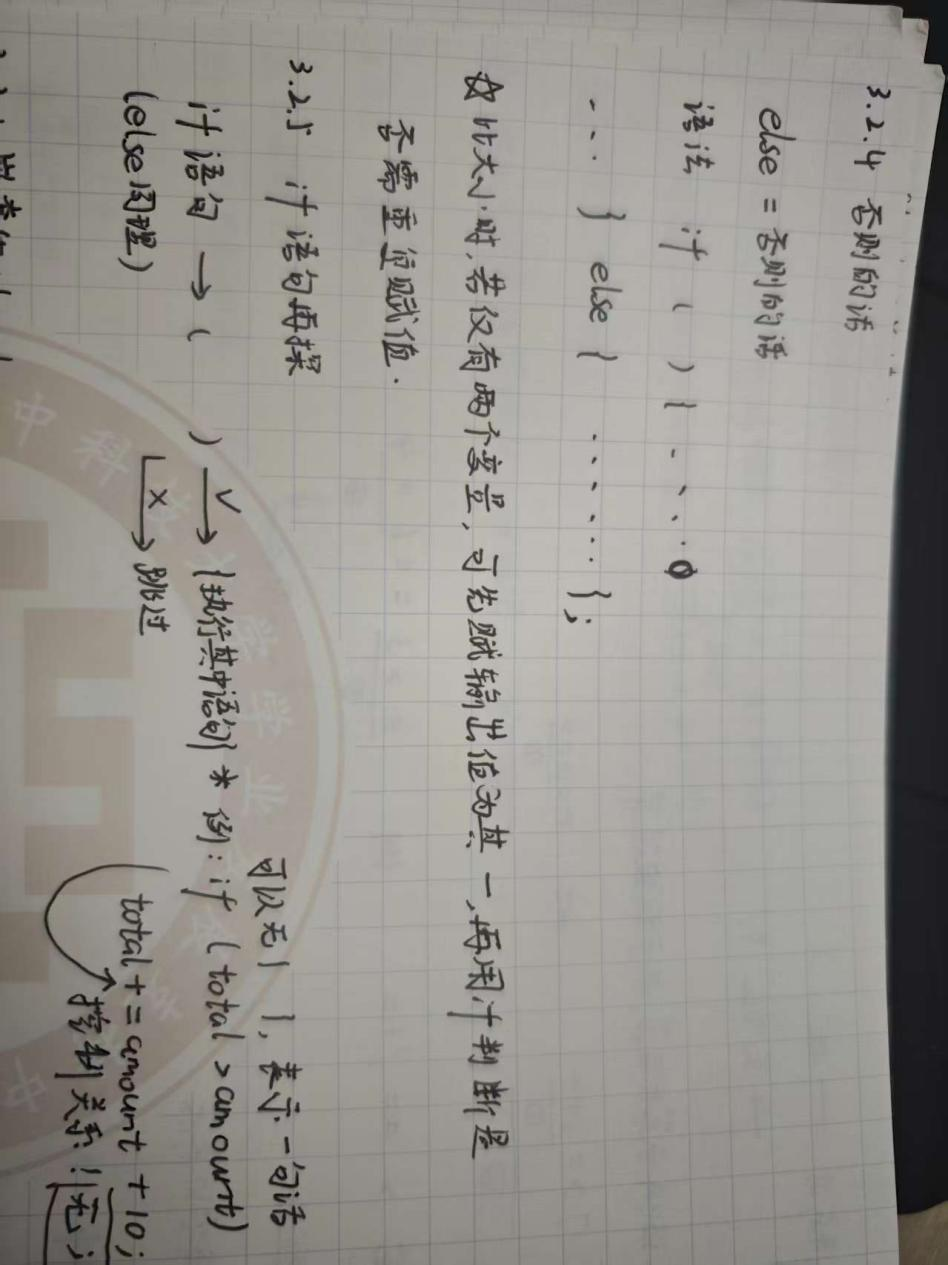 3.2.4 否则的话
else = 否则的话
语法 if ( ) { ....
... } else { ...... };
☆ 比大小时,若仅有两个变量,可先赋输出值为其一,再用if判断是
否需重行赋值.
3.2.5 if语句再探
可以无{ },表示一句话
if语句 → ( ) ✓→ {执行其中语句} * 例: if (total > amount)
(else同理) ×→ 跳过 total += amount + 10;
控制关系!无;
中 科 学 学 业